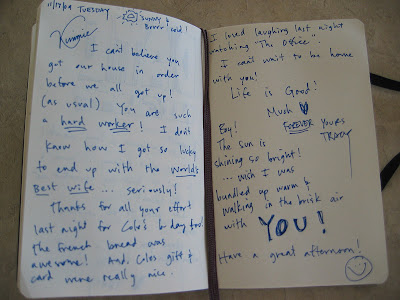 11/17/09 TUESDAY SUNNY &
Brrrr cold!
Kumque
I can't believe you
got our house in order
before we all got up!
(as usual) You are such
a hard worker! I don't
know how I got so lucky
to end up with the world's
Best wife ... seriously!
Thanks for all your effort
last night for Cole's b-day too!
The French bread was
awesome! And Coles gift &
card were really nice.
I loved laughing last night
watching "The Office".
I can't wait to be home
with you!
Life is Good!
Much
FOREVER YOURS
TRACY
Boy!
The sun is
shining so bright!
... wish I was
bundled up warm &
walking in the brisk air
with YOU!
Have a great afternoon!